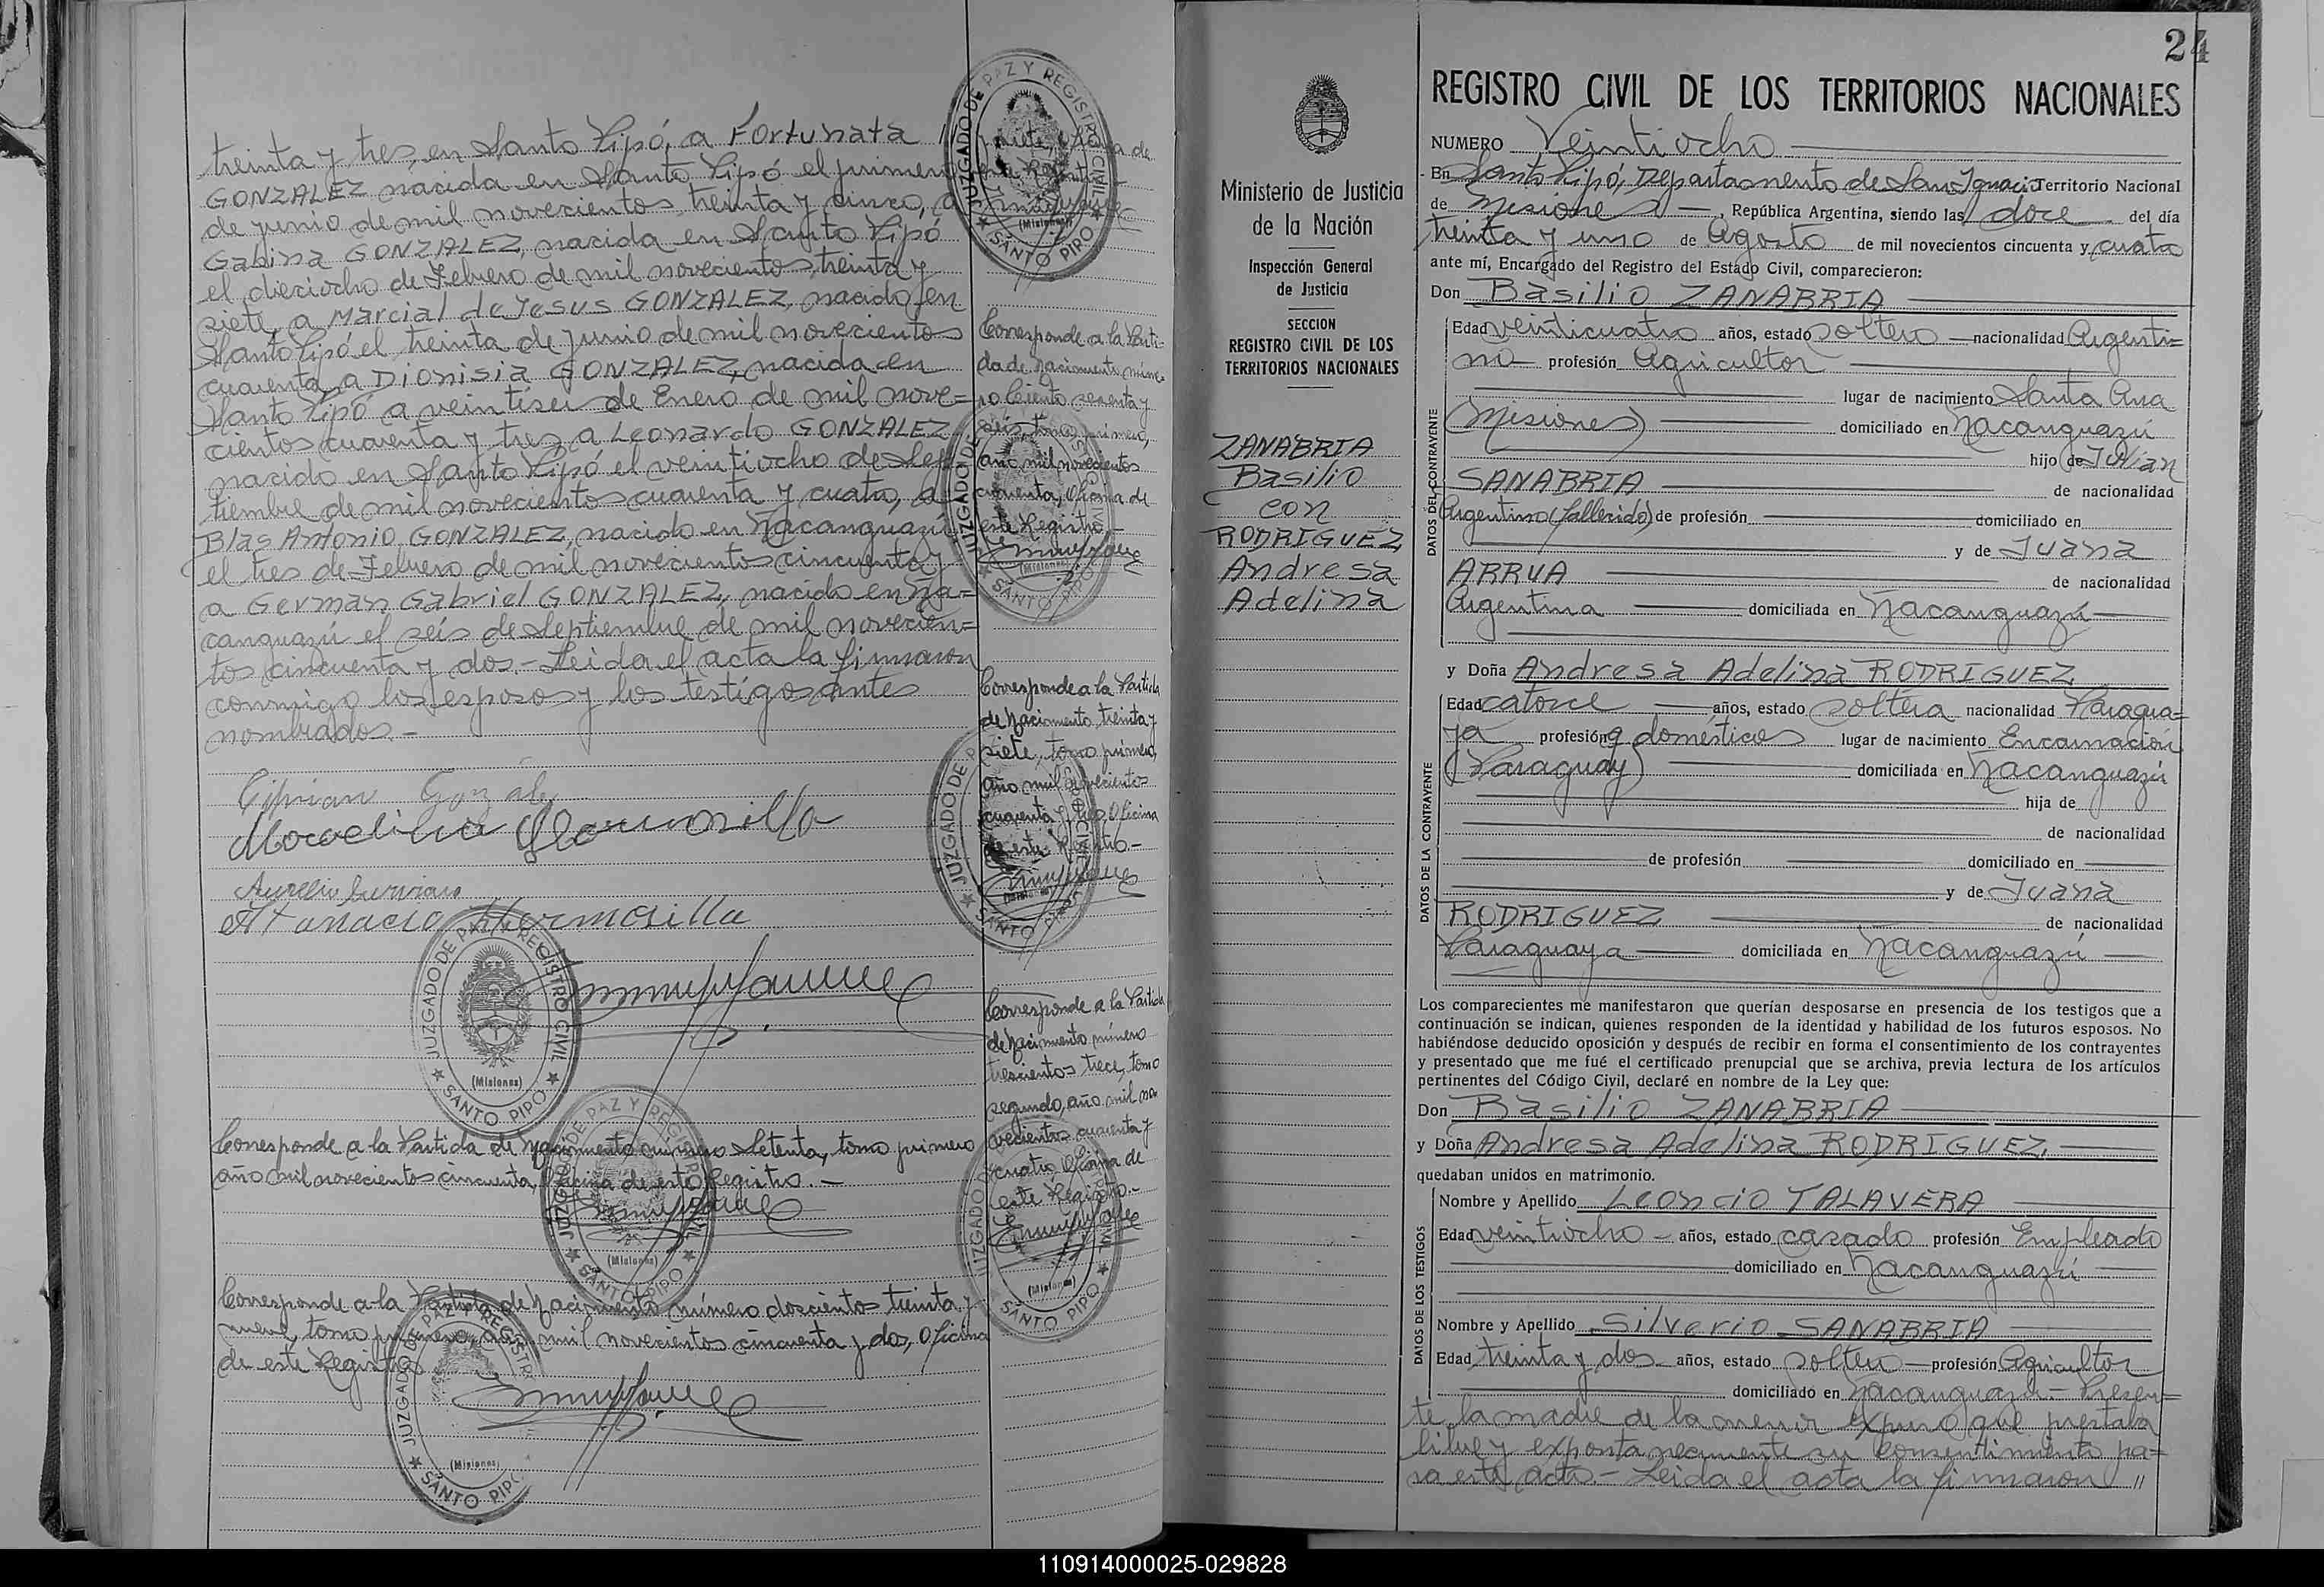 treinta y tres, en Santo Pipó, a Fortunata
GONZALEZ nacida en Santo Pipó el primero
de junio de mil novecientos treinta y cinco, a
Gabina GONZALEZ, nacida en Santo Pipó
el dieciocho de Febrero de mil novecientos treinta y
siete, a Marcial de Jesus GONZALEZ, nacido en
Santo Pipó el treinta de junio de mil novecientos
cuarenta, a Dionisia GONZALEZ, nacida en
Santo Pipó a veintiseis de Enero de mil nove=
cientos cuarenta y tres, a Leonardo GONZALEZ
nacido en Santo Pipó el veintiocho de Sep
tiembre de mil novecientos cuarenta y cuatro, a
Blas Antonio GONZALEZ, nacido en Ñacanguazú
el tres de Febrero de mil novecientos cincuenta y
a German Gabriel GONZALEZ, nacido en Ña=
canguazú el seis de Septiembre de mil novecien=
tos cincuenta y dos.- Leida el acta la firmaron
conmigo los esposos y los testigos antes
nombrados.-
Ciprian Gonzalez
Marcelina Hermosilla
Atanacio Hermosilla
JUZGADO DE PAZ Y REGISTRO CIVIL
(Misiones)
SANTO PIPO
Corresponde a la Partida de Nacimiento número Setenta, tomo primero
año mil novecientos cincuenta, Oficina de este Registro.-
Corresponde a la Partida de Nacimiento número doscientos treinta y
nueve, tomo primero, año mil novecientos cincuenta y dos, Oficina
de este Registro
siete, Oficina de
este Registro
Corresponde a la Parti-
da de Nacimiento núme-
ro Ciento sesenta y
seis, tomo primero,
año mil novecientos
cuarenta, Oficina de
este Registro.-
Corresponde a la Partida
de Nacimiento, treinta y
siete, tomo primero,
año mil novecientos
cuarenta y tres, Oficina
de este Registro.-
Corresponde a la Partida
de Nacimiento número
trescientos trece, tomo
segundo, año mil no
vecientos cuarenta y
cuatro Oficina de
este Registro.-
Ministerio de Justicia
de la Nación
Inspección General
de Justicia
SECCION
REGISTRO CIVIL DE LOS
TERRITORIOS NACIONALES
ZANABRIA
Basilio
con
RODRIGUEZ
Andresa
Adelina
24
REGISTRO CIVIL DE LOS TERRITORIOS NACIONALES
NUMERO Veintiocho
En Santo Pipó, Departamento de San Ignacio Territorio Nacional
de Misiones, República Argentina, siendo las doce del día
treinta y uno de Agosto de mil novecientos cincuenta y cuatro
ante mí, Encargado del Registro del Estado Civil, comparecieron:
Don Basilio ZANABRIA
DATOS DEL CONTRAYENTE
Edad veinticuatro años, estado soltero nacionalidad Argenti=
no profesión Agricultor
lugar de nacimiento Santa Ana
(Misiones) domiciliado en Ñacanguazú
hijo de Julian
SANABRIA de nacionalidad
Argentino (fallecido) de profesión domiciliado en
y de Juana
ARRUA de nacionalidad
Argentina domiciliada en Ñacanguazú
y Doña Andresa Adelina RODRIGUEZ
DATOS DE LA CONTRAYENTE
Edad catorce años, estado soltera nacionalidad Paragua=
ya profesión q. domésticos lugar de nacimiento Encarnación
(Paraguay) domiciliada en Ñacanguazú
hija de
de nacionalidad
de profesión domiciliado en
y de Juana
RODRIGUEZ de nacionalidad
Paraguaya domiciliada en Ñacanguazú
Los comparecientes me manifestaron que querían desposarse en presencia de los testigos que a
continuación se indican, quienes responden de la identidad y habilidad de los futuros esposos. No
habiéndose deducido oposición y después de recibir en forma el consentimiento de los contrayentes
y presentado que me fué el certificado prenupcial que se archiva, previa lectura de los artículos
pertinentes del Código Civil, declaré en nombre de la Ley que:
Don Basilio ZANABRIA
y Doña Andresa Adelina RODRIGUEZ
quedaban unidos en matrimonio.
DATOS DE LOS TESTIGOS
Nombre y Apellido Leoncio TALAVERA
Edad veintiocho años, estado casado profesión Empleado
domiciliado en Ñacanguazú
Nombre y Apellido Silverio SANABRIA
Edad treinta y dos años, estado soltero profesión Agricultor
domiciliado en Ñacanguazú - Presen=
te la madre de la menor expuso que prestaba
libre y expontaneamente su consentimiento pa=
ra este acto - Leida el acta la firmaron //
110914000025-029828